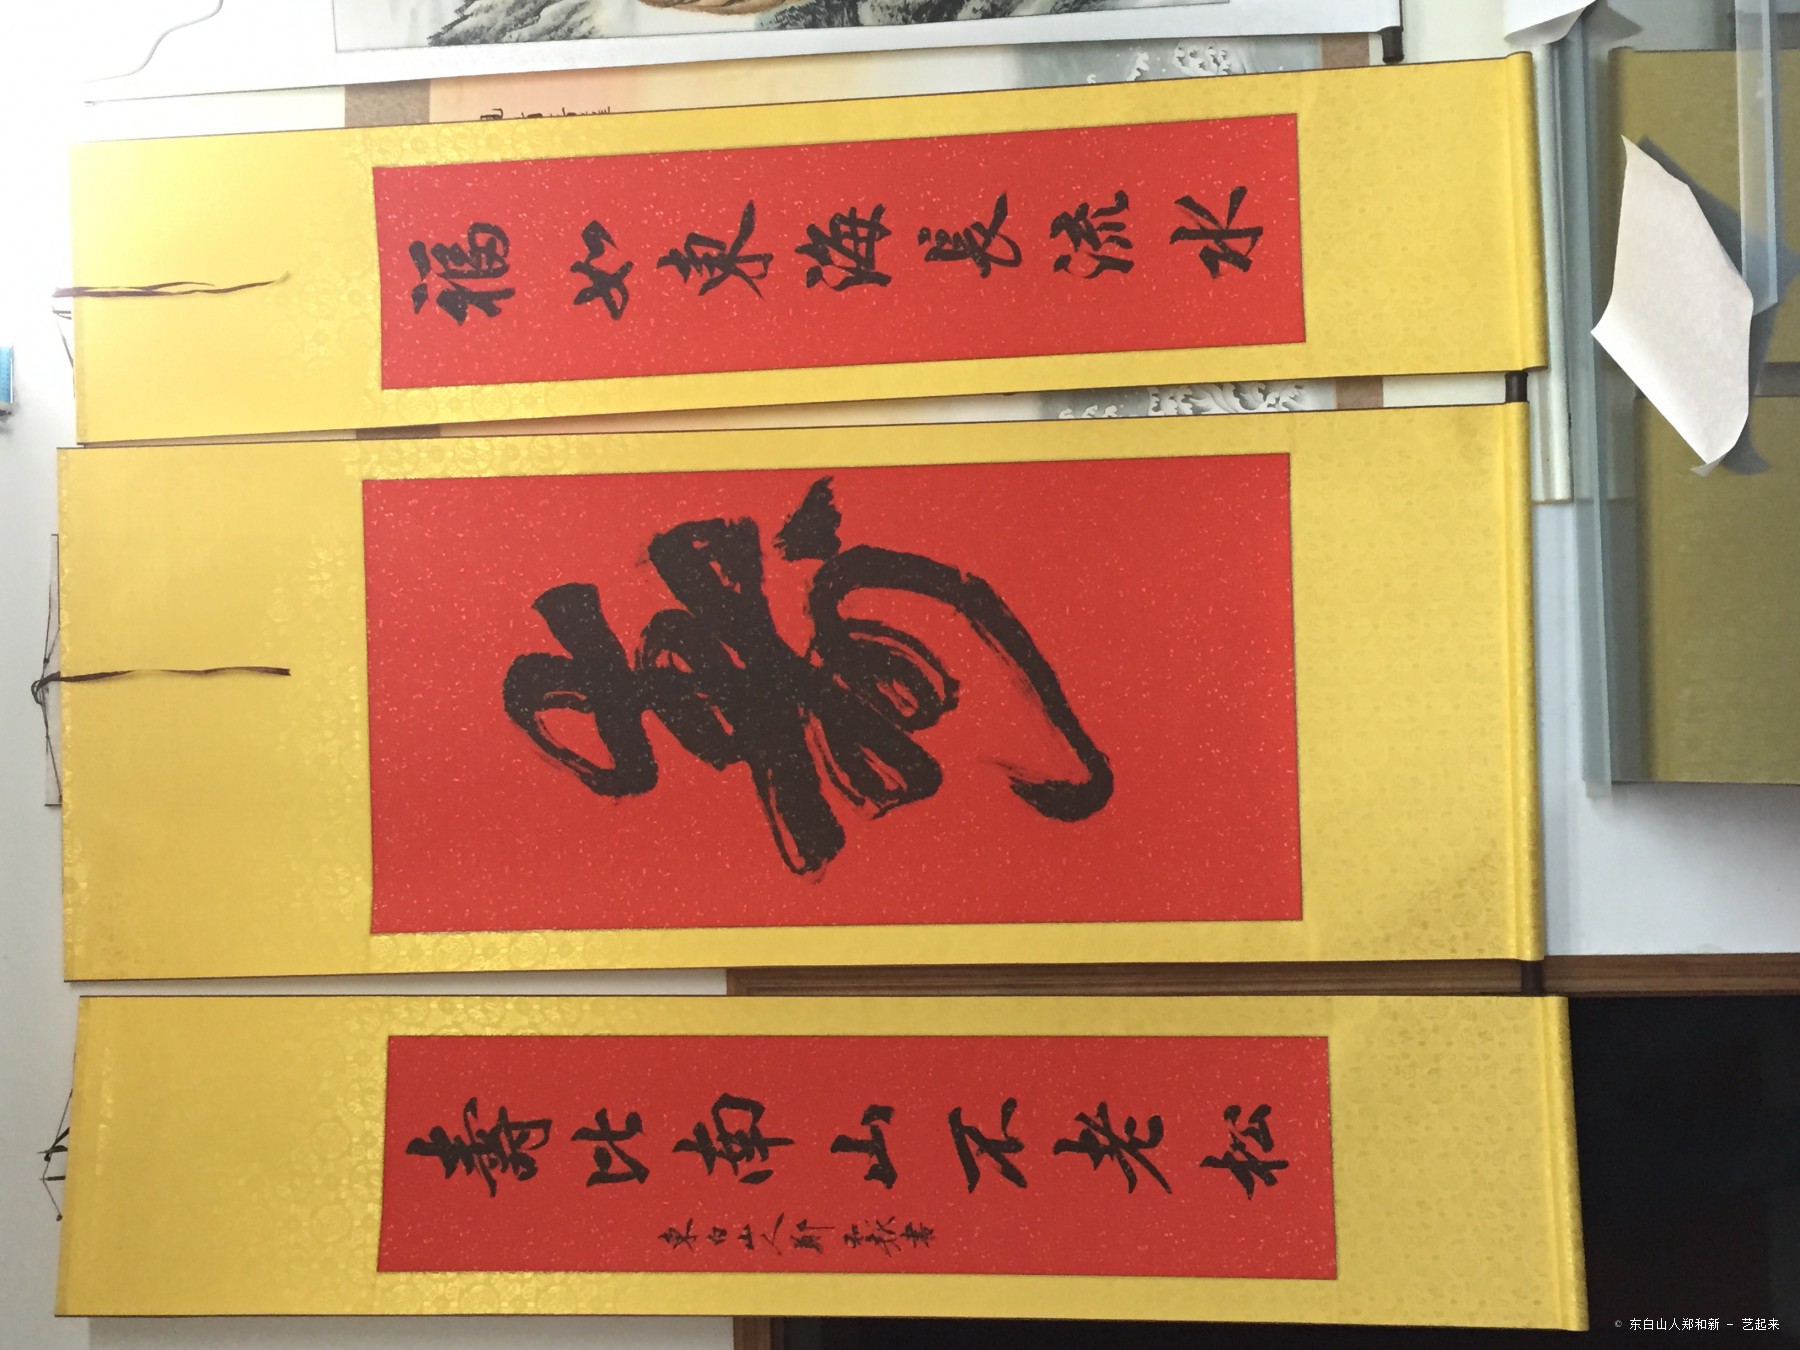 福如東海長流水
壽
壽比南山不老松
東白山人鄭和新書
© 东白山人郑和新 - 艺起来